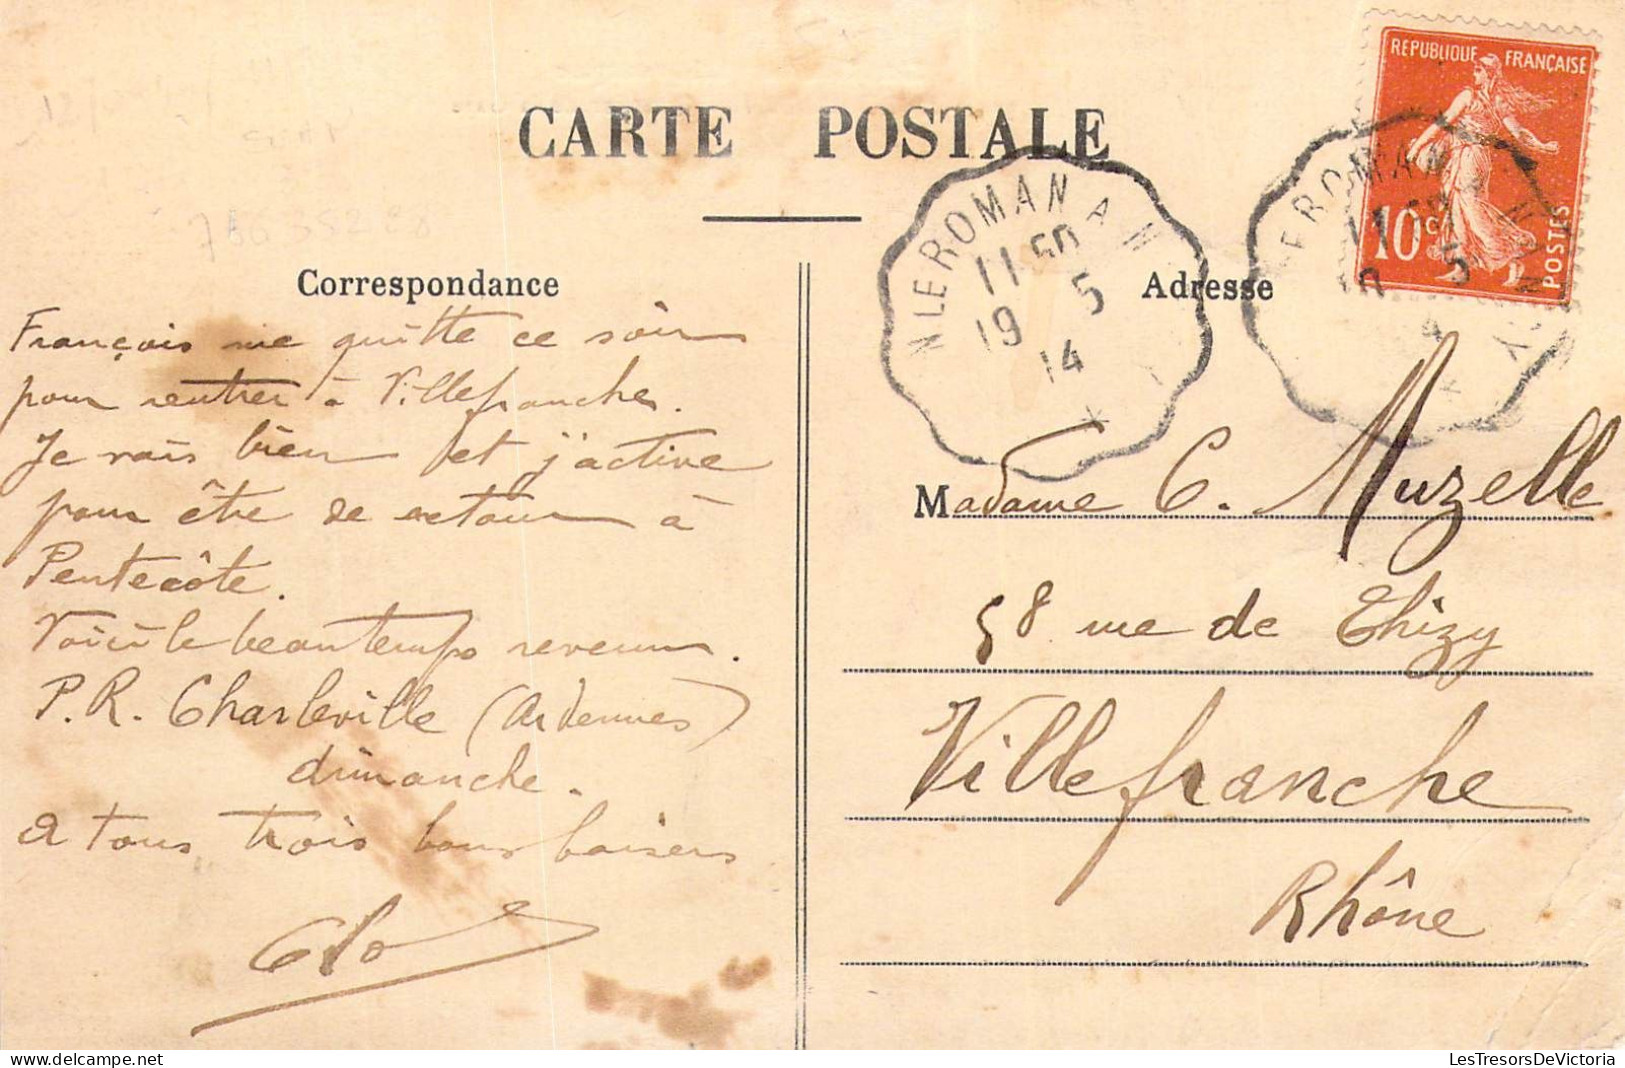 CARTE POSTALE
REPUBLIQUE FRANÇAISE
10 c
POSTES
11 50
19 5
14
Correspondance
Adresse
François me quitte ce soir
pour rentrer à Villefranche.
Je vais bien et j'active
pour être de retour à
Pentecôte.
Voici le beau temps revenu.
P.R. Charleville (Ardennes)
dimanche.
A tous trois bons baisers
Clo
Madame C. Muzelle
58 rue de Thizy
Villefranche
Rhône
LesTresorsDeVictoria